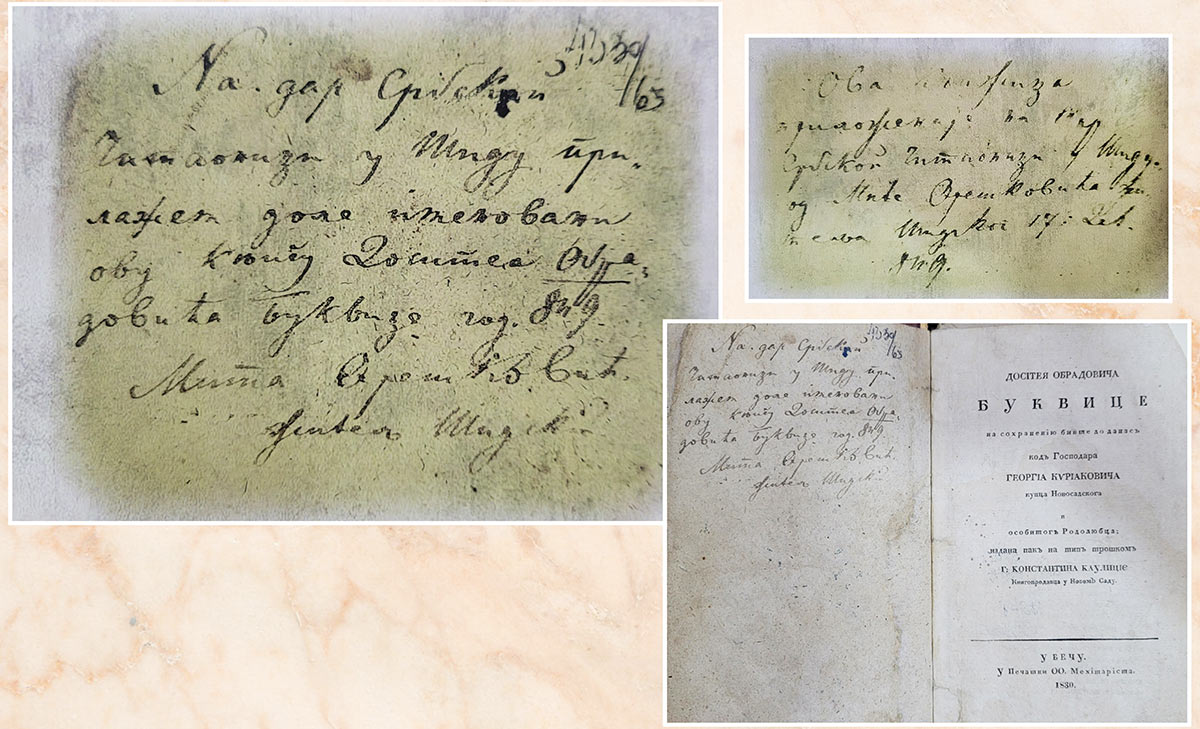 На дар Србской
Читаоници у Шиду при-
лажет доле именовани
ову книгу Доситеа Обра-
довића буквице год. 849.
Мита Врешковић.
житель Шидски
Ова книжица
приложена је на дар
Србской Читаоници у Шиду
од Мите Врешковића жи-
теля Шидског 17: Дек.
849.
На дар Србской
Читаоници у Шиду при-
лажет доле именовани
ову книгу Доситеа Обра-
довића буквице год. 849.
Мита Врешковић.
житель Шидски
ДОСІТЕЯ ОБРАДОВИЧА
БУКВИЦЕ
на сохраненію бивше до данасъ
кодъ Господара
ГЕОРГІА КУРІАКОВИЧА
купца Новосадского
и
особитогъ Родолюбца;
издана пакъ на типъ трошкомъ
Г: КОНСТАНТИНА КАУЛИЦІЕ
Книгопродавца у Новомъ Саду.
У БЕЧУ.
У Печатни ОО. Мехітаріста.
1830.